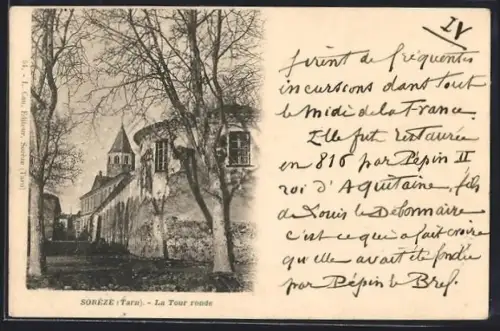 IV
firent de fréquentes
incursions dans tout
le midi de la France.
Elle fut restaurée
en 816 par Pépin II
roi d'Aquitaine, fils
de Louis le Débonnaire
c'est ce qui a fait croire
qu'elle avait été fondée
par Pépin le Bref.
51. - L. Cau, Editeur, Sorèze (Tarn)
SORÈZE (Tarn). - La Tour ronde